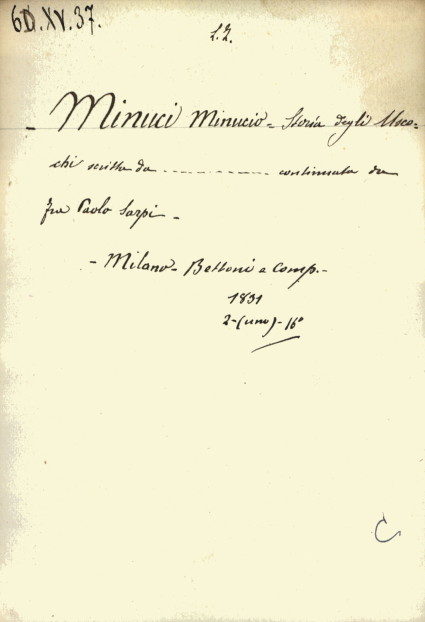 60.XV.37.
L.L.
- Minuci Minucio - Storia degli Usco-
chi scritta da ............ continuata da
Fra Paolo Sarpi -
- Milano - Bettoni e Comp. -
1831
2 - (uno) - 16°
C